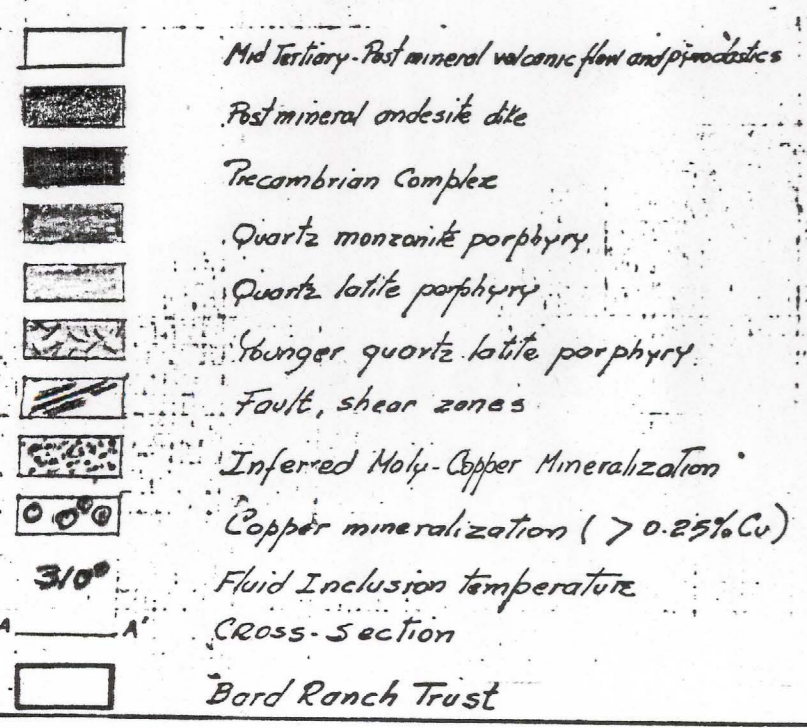 Mid Tertiary-Post mineral volcanic flow and pyroclastics
Post mineral andesite dike
Precambrian Complex
Quartz monzonite porphyry
Quartz latite porphyry
Younger quartz latite porphyry
Fault, shear zones
Inferred Moly-Copper Mineralization
Copper mineralization ( > 0.25% Cu )
310° Fluid Inclusion temperature
A A' CROSS-Section
Bard Ranch Trust